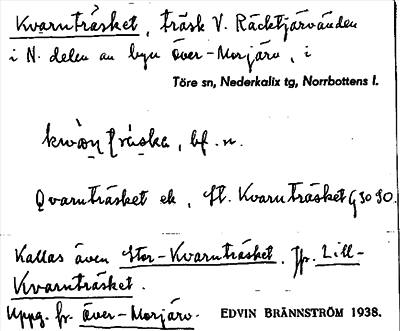 Kvarnträsket, träsk V. Räcktjärvånden
i N. delen av byn Över-Morjärv, i
Töre sn, Nederkalix tg, Norrbottens l.
bf. n.
Qvarnträsket ek, St. Kvarnträsket G 30 SO.
Kallas även Stor-Kvarnträsket. Jfr. Lill-
Kvarnträsket.
Uppg. fr. Över-Morjärv. EDVIN BRÄNNSTRÖM 1938.